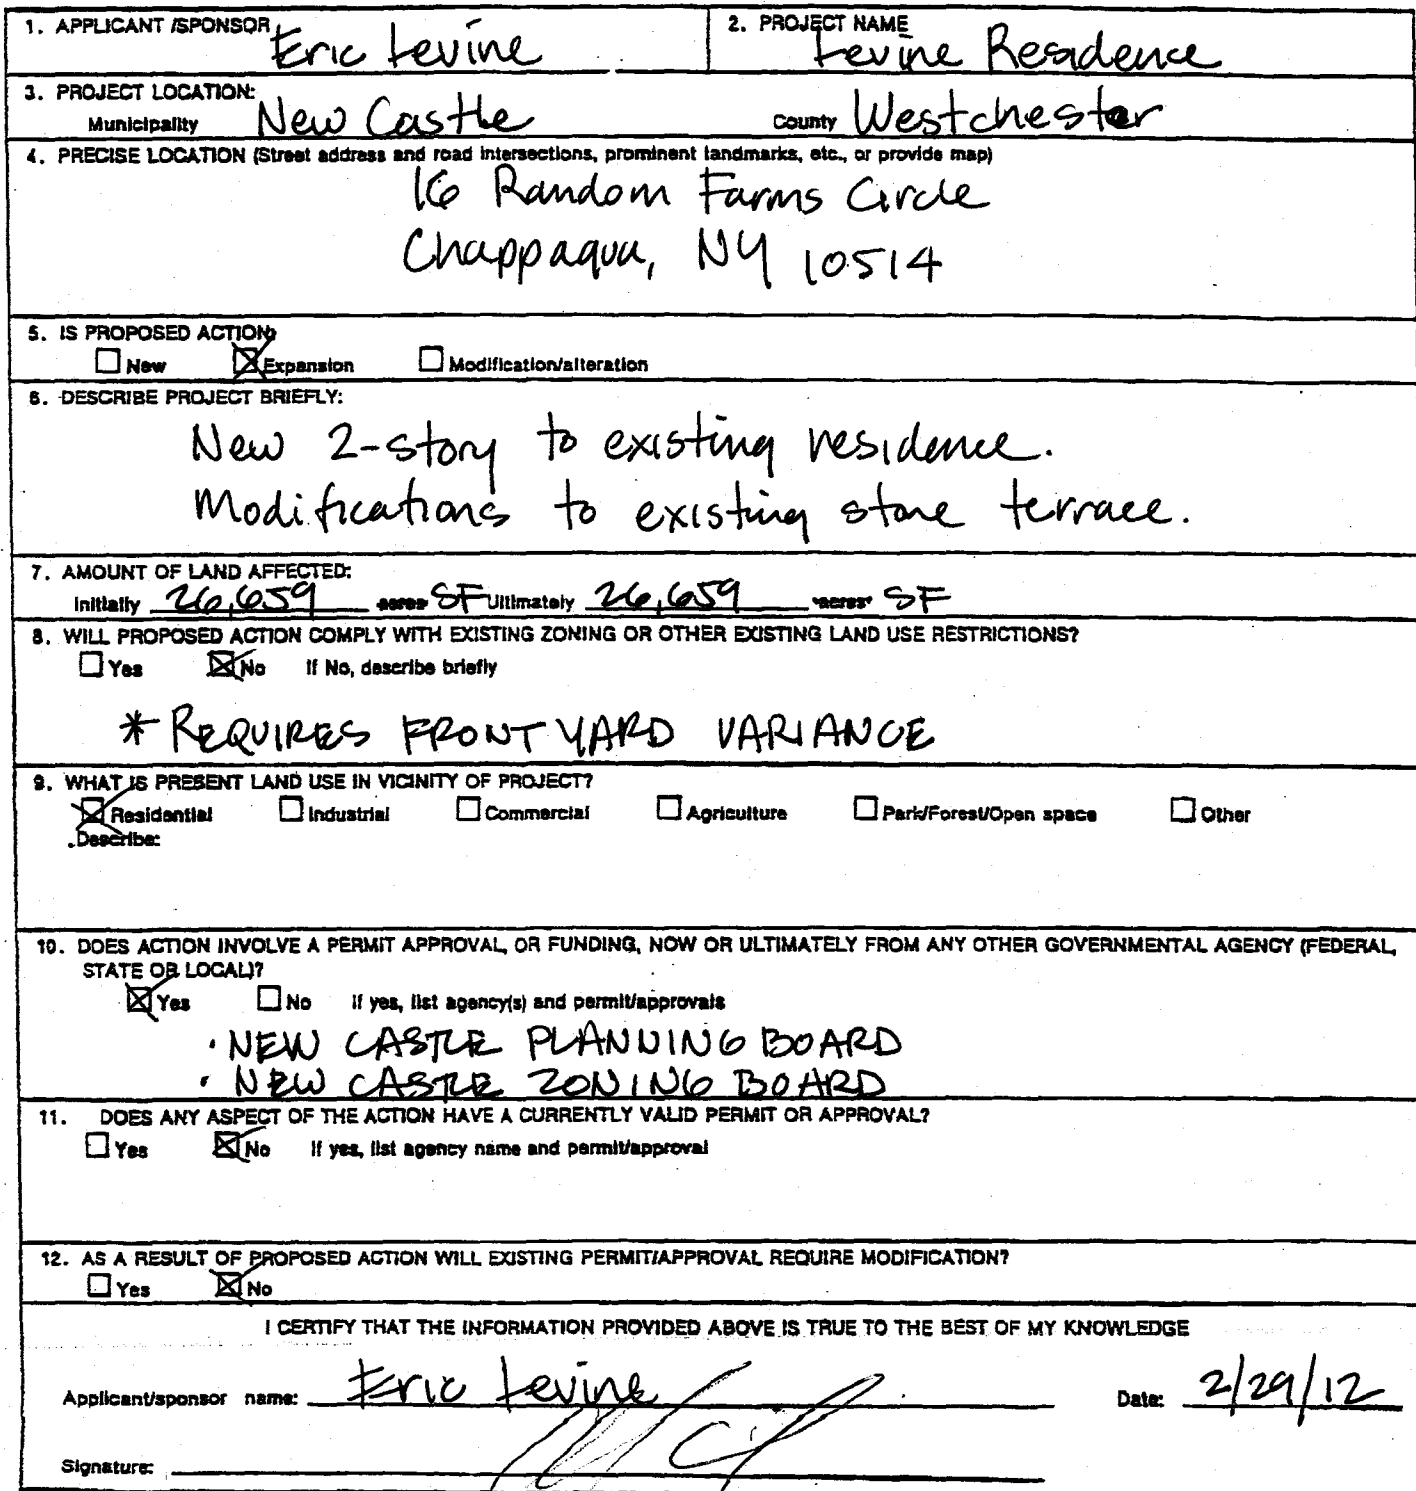 1. APPLICANT /SPONSOR Eric Levine 2. PROJECT NAME Levine Residence
3. PROJECT LOCATION:
Municipality New Castle County Westchester
4. PRECISE LOCATION (Street address and road intersections, prominent landmarks, etc., or provide map)
16 Random Farms Circle
Chappaqua, NY 10514
5. IS PROPOSED ACTION:
☐ New ☒ Expansion ☐ Modification/alteration
6. DESCRIBE PROJECT BRIEFLY:
New 2-story to existing residence.
Modifications to existing stone terrace.
7. AMOUNT OF LAND AFFECTED:
Initially 26,659 acres SF Ultimately 26,659 acres SF
8. WILL PROPOSED ACTION COMPLY WITH EXISTING ZONING OR OTHER EXISTING LAND USE RESTRICTIONS?
☐ Yes ☒ No If No, describe briefly
* REQUIRES FRONT YARD VARIANCE
9. WHAT IS PRESENT LAND USE IN VICINITY OF PROJECT?
☒ Residential ☐ Industrial ☐ Commercial ☐ Agriculture ☐ Park/Forest/Open space ☐ Other
Describe:
10. DOES ACTION INVOLVE A PERMIT APPROVAL, OR FUNDING, NOW OR ULTIMATELY FROM ANY OTHER GOVERNMENTAL AGENCY (FEDERAL,
STATE OR LOCAL)?
☒ Yes ☐ No If yes, list agency(s) and permit/approvals
· NEW CASTLE PLANNING BOARD
· NEW CASTLE ZONING BOARD
11. DOES ANY ASPECT OF THE ACTION HAVE A CURRENTLY VALID PERMIT OR APPROVAL?
☐ Yes ☒ No If yes, list agency name and permit/approval
12. AS A RESULT OF PROPOSED ACTION WILL EXISTING PERMIT/APPROVAL REQUIRE MODIFICATION?
☐ Yes ☒ No
I CERTIFY THAT THE INFORMATION PROVIDED ABOVE IS TRUE TO THE BEST OF MY KNOWLEDGE
Applicant/sponsor name: Eric Levine Date: 2/29/12
Signature: